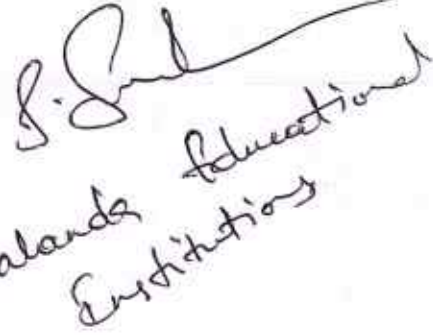 alanda Educational
Institutions